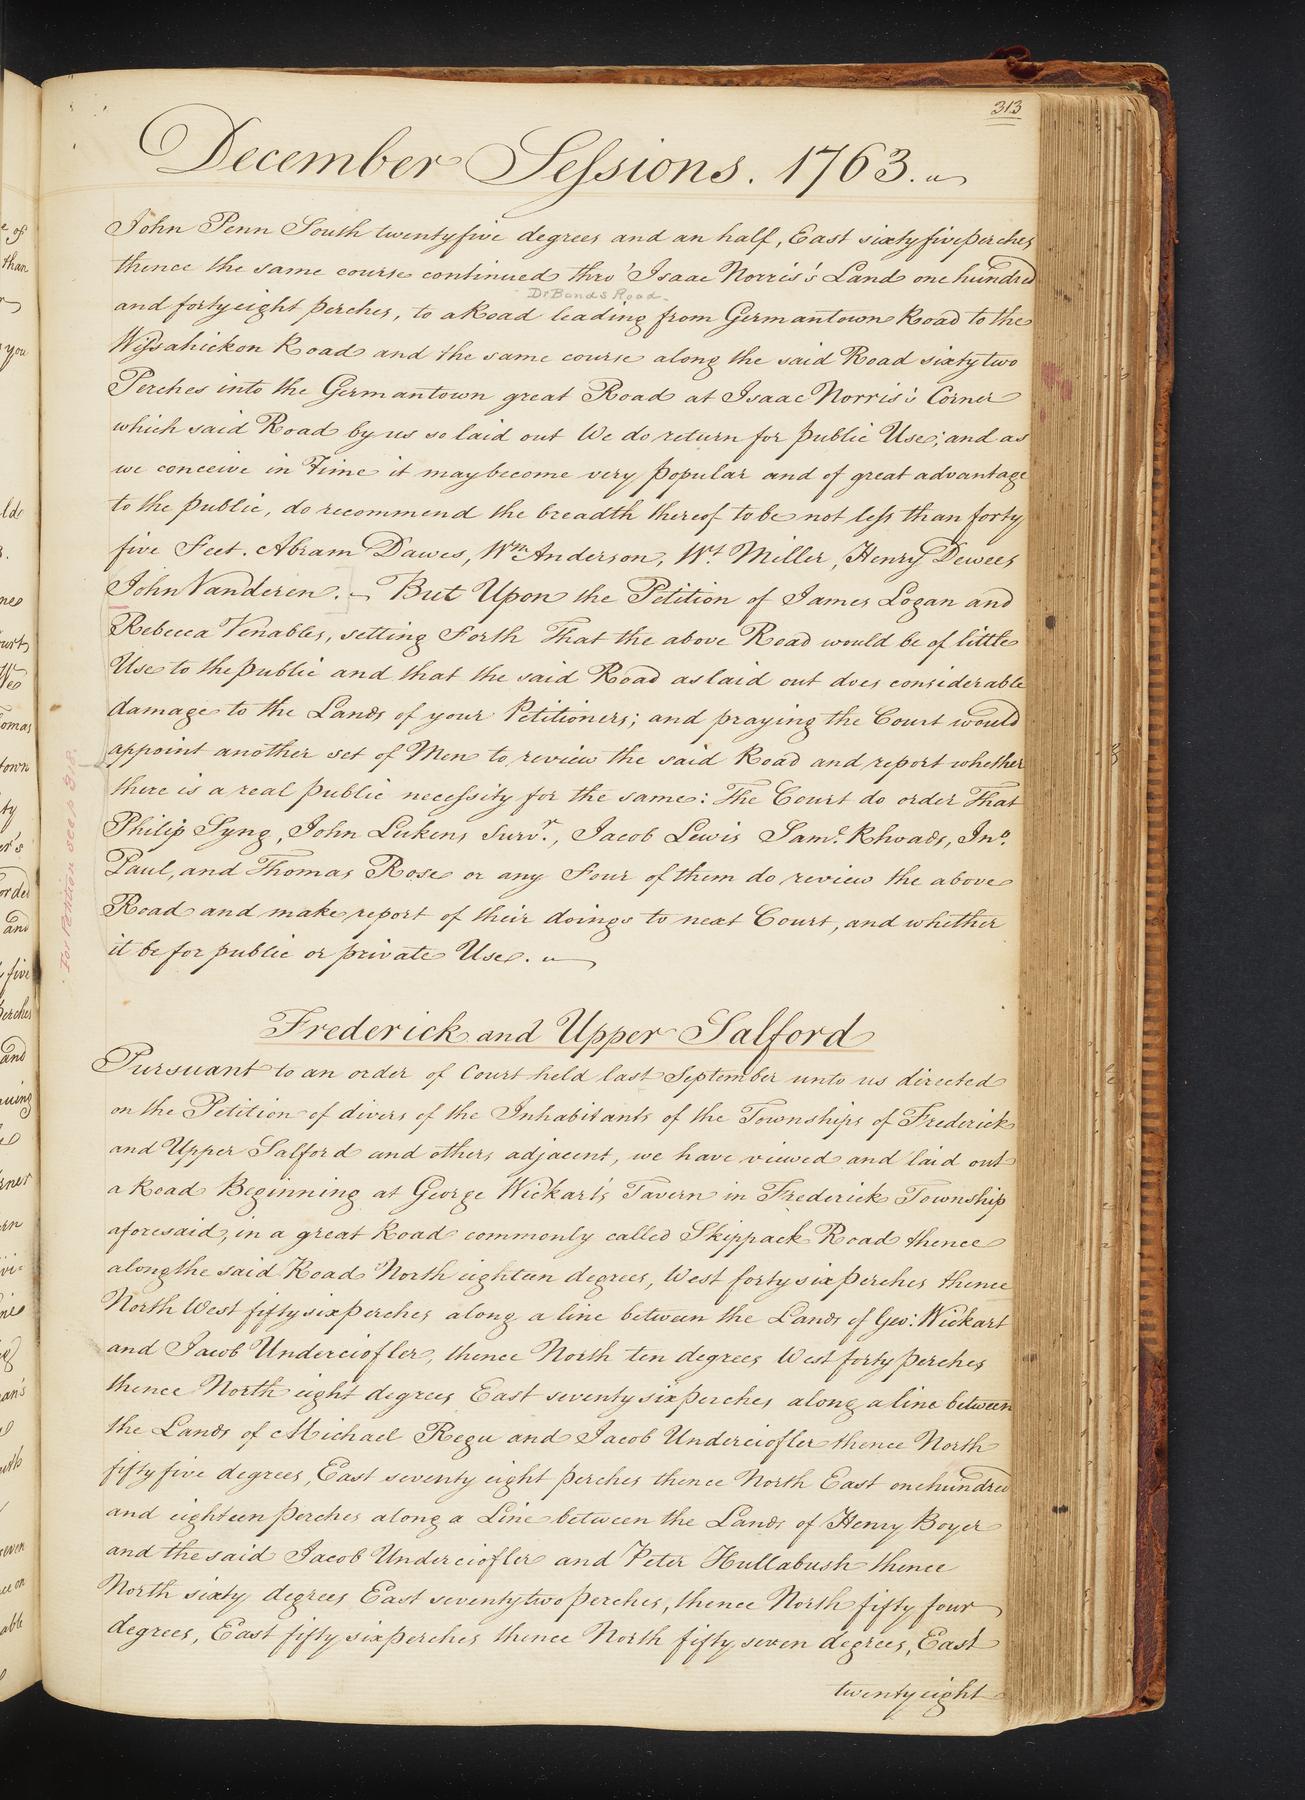 313
December Sessions. 1763.
John Penn South twentyfive degrees and an half, East sixtyfive perches
thence the same course continued thro' Isaac Norris's Land one hundred
DeBends Road.
and forty eight perches, to a Road leading from Germantown Road to the
Wissahickon Road and the same course along the said Road sixty two
Perches into the Germantown great Road at Isaac Norris's Corner
which said Road by us so laid out We do return for public Use; and as
we conceive in Time it may become very popular and of great advantage
to the public, do recommend the breadth thereof to be not less than forty
five Feet. Abram Dawes, Wm Anderson, Wt. Miller, Henry Dewees
John Vanderen. But Upon the Petition of James Logan and
Rebecca Venables, setting Forth That the above Road would be of little
Use to the public and that the said Road as laid out does considerable
damage to the Lands of your Petitioners; and praying the Court would
appoint another set of Men to review the said Road and report whether
there is a real public necessity for the same: The Court do order That
Philip Syng, John Lukens Survr., Jacob Lewis Saml. Rhoads, Jno.
Paul, and Thomas Rose or any Four of them do review the above
Road and make report of their doings to next Court, and whether
it be for public or private Use.
For Petition see p 318.
Frederick and Upper Salford
Pursuant to an order of Court held last September unto us directed
on the Petition of divers of the Inhabitants of the Townships of Frederick
and Upper Salford and others adjacent, we have viewed and laid out
a Road Beginning at George Wickart's Tavern in Frederick Township
aforesaid, in a great Road commonly called Skippack Road thence
along the said Road North eighteen degrees, West forty six perches thence
North West fifty six perches along a line between the Lands of Geo: Wickart
and Jacob Underciofler, thence North ten degrees West forty perches
thence North eight degrees East seventy six perches along a line between
the Lands of Michael Regu and Jacob Underciofler thence North
fifty five degrees, East seventy eight perches thence North East one hundred
and eighteen perches along a Line between the Lands of Henry Boyer
and the said Jacob Underciofler and Peter Hullabush thence
North sixty degrees East seventy two perches, thence North fifty four
degrees, East fifty six perches thence North fifty seven degrees, East
twenty eight